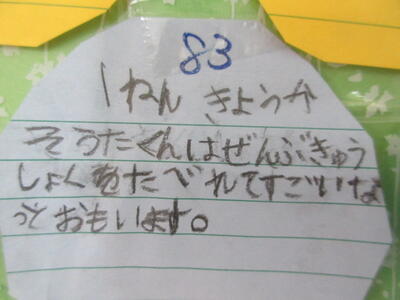 83
1ねん きょうか
そうたくんはぜんぶきゅう
しょくをたべれてすごいな
っとおもいます。